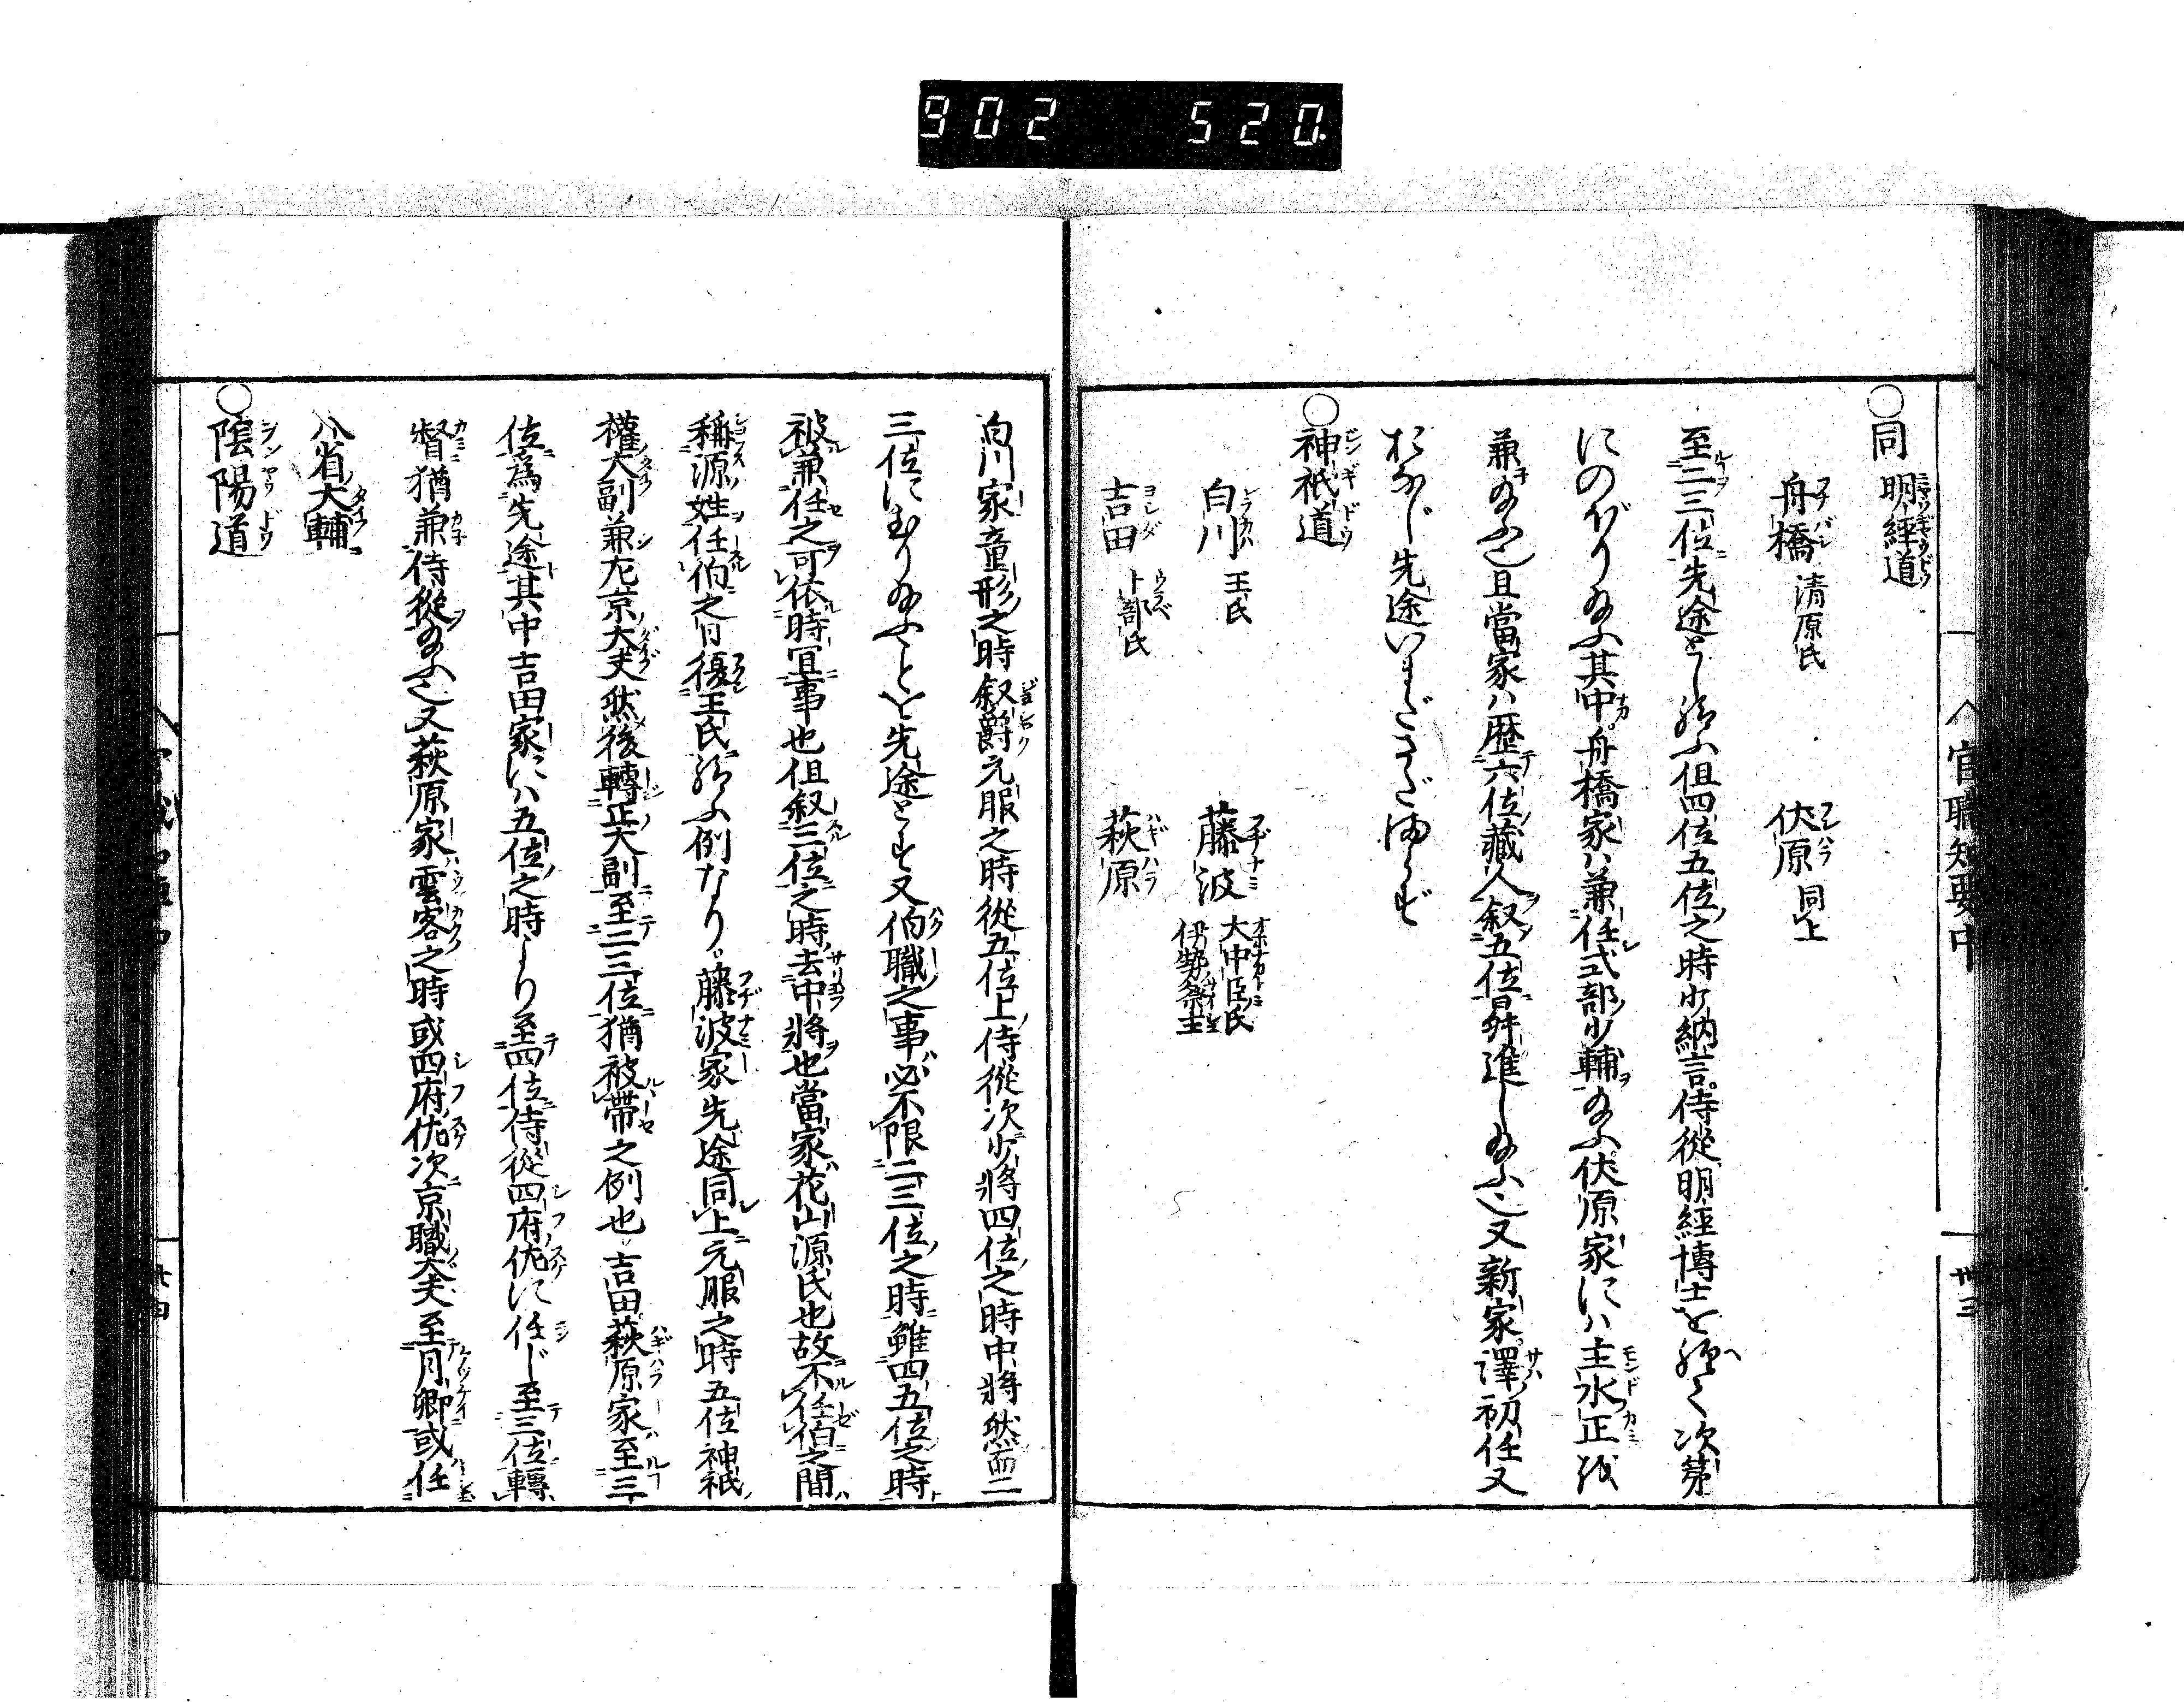 902 520
官職知要中 卅三
○同 明經道
舟橋 清原氏 伏原 同上
至二三位先途とし給ふ但四位五位之時少納言侍從明經博士を經て次第
にのぼり給ふ其中舟橋家ハ兼任式部少輔給ふ伏原家にハ主水正
兼給ふ也且當家ハ歷六位藏人叙五位昇進し給ふ也又新家澤初任又
おなじ先途いまださだまらず
○神祇道
白川 王氏 藤波 大中臣氏 伊勢祭主
吉田 卜部氏 萩原
白川家童形之時叙爵元服之時從五位上侍從次少將四位之時中將然而二
三位にむり給ふことを先途とす又伯職之事必不限二三位之時雖四五位之時
被兼任之可依時宜事也但叙三位之時去中將也當家花山源氏也故不任伯之間
稱源姓任伯之日復王氏給ふ例なり藤波家先途同上元服之時五位神祇
權大副兼左京大夫然後轉正大副至二三位猶被帶之例也吉田萩原家至三
位爲先途其中吉田家にハ五位之時より至四位侍從四府佐に任じ至三位轉
督猶兼侍從給ふ也又萩原家雲客之時或四府佐次京職大夫至月卿或任
八省大輔
○陰陽道